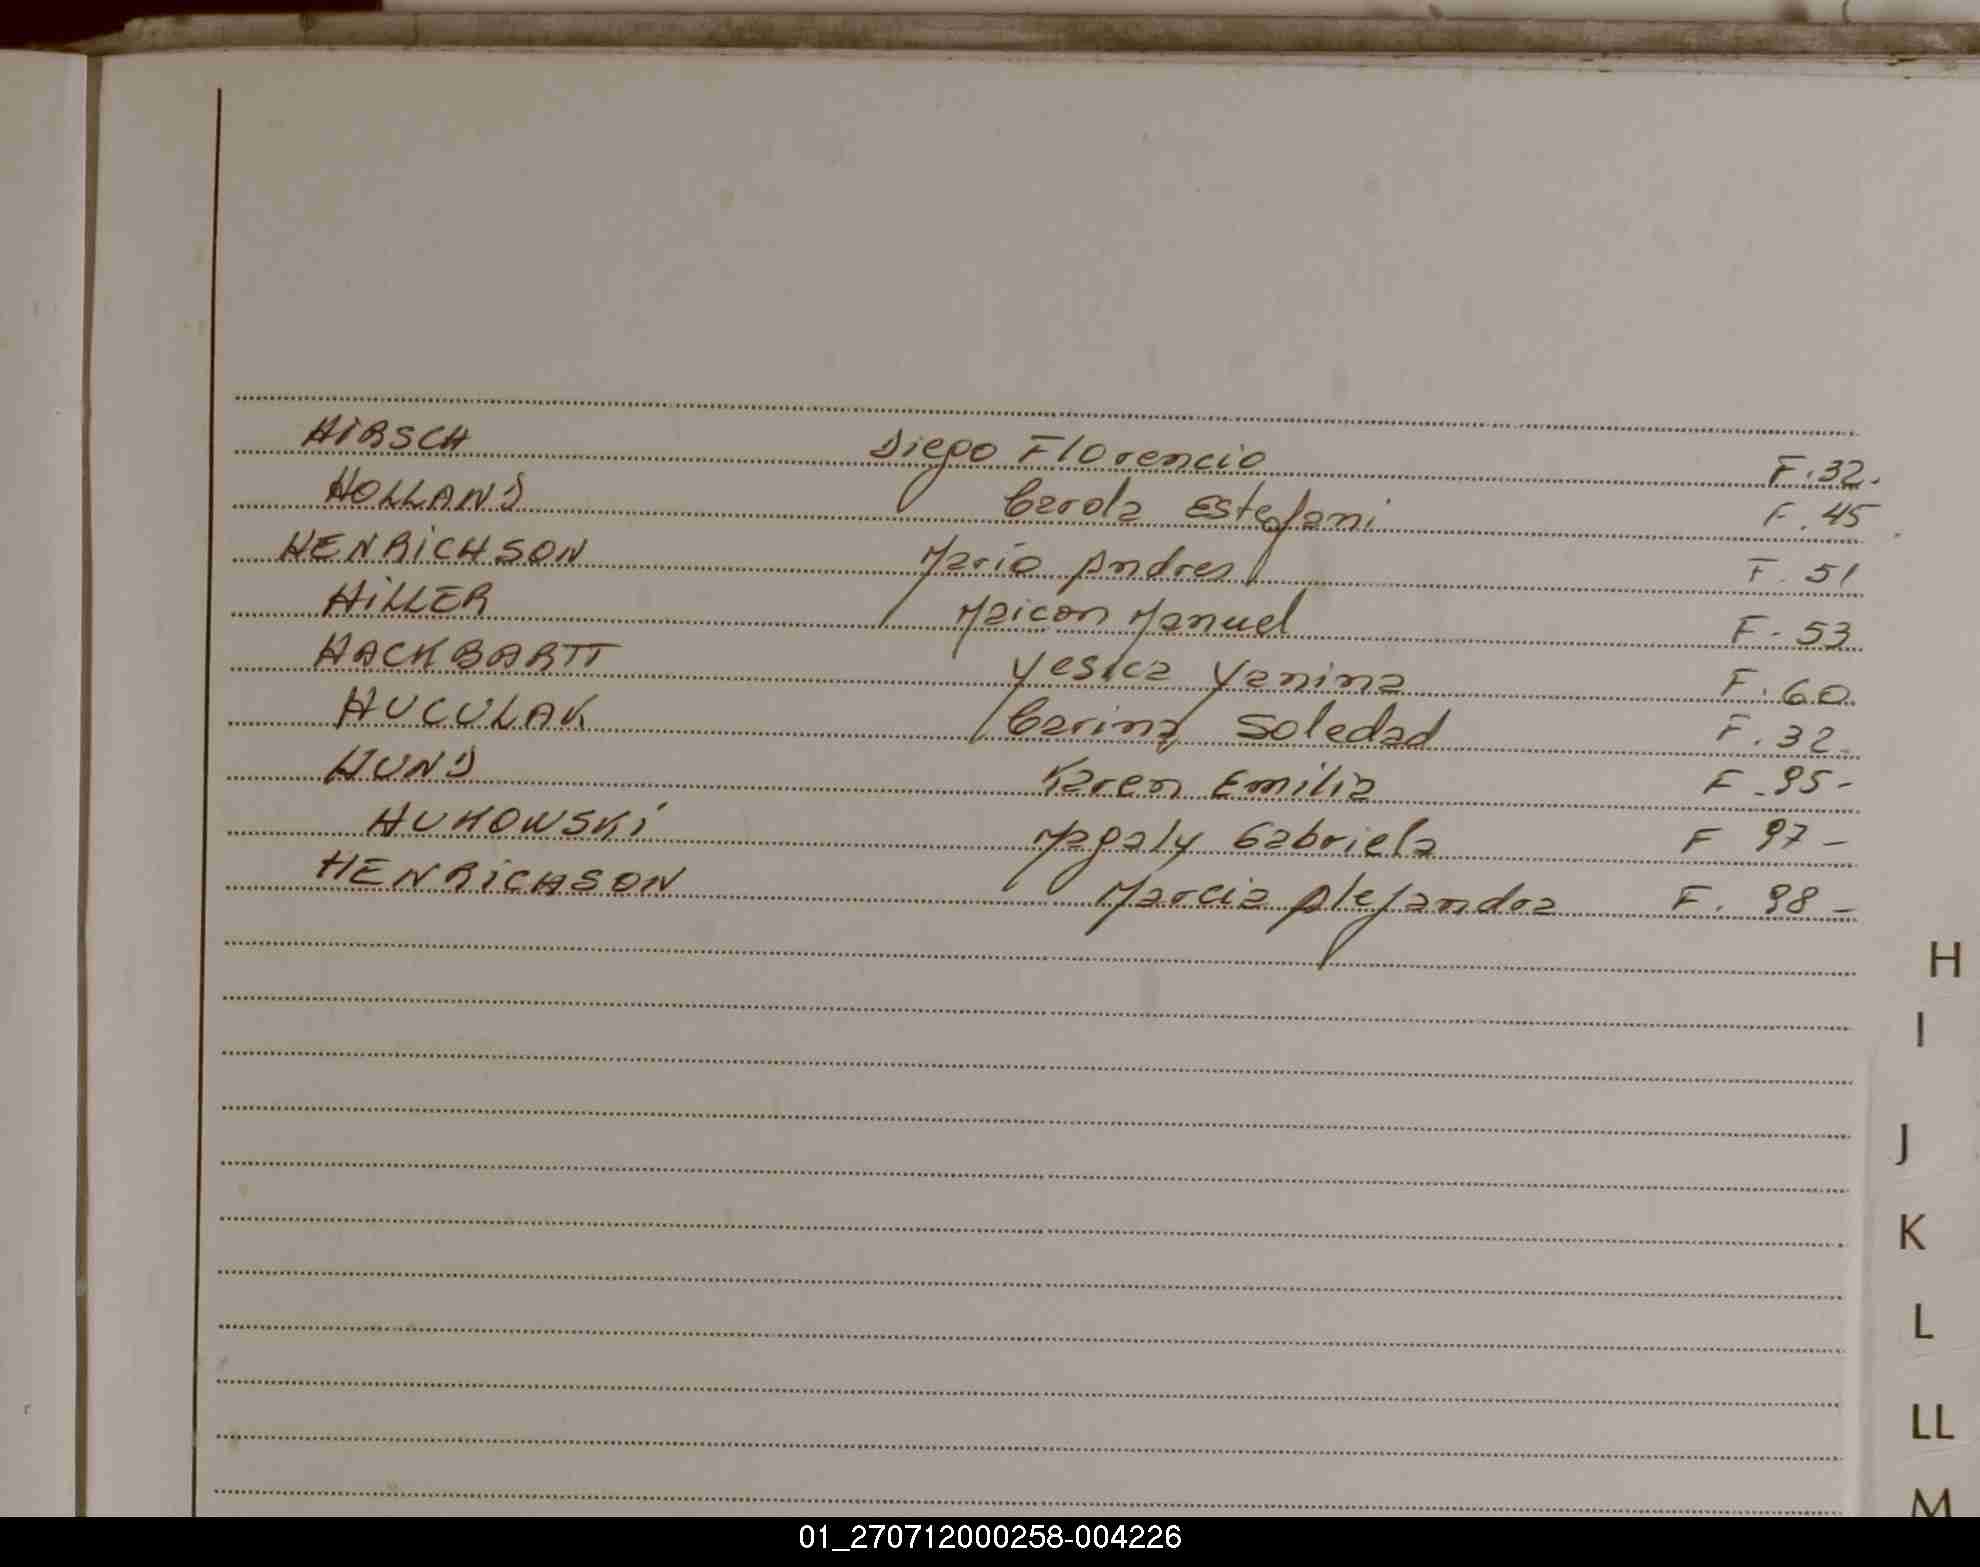 HIRSCH Diego Florencio F. 32.
HOLLAND Carola Estefani F. 45
HENRICHSON Mario Andres F. 51
HILLER Maicon Manuel F. 53
HACKBARTT Yesica Yanina F. 60
HUCULAK Carina Soledad F. 32
HUND Karen Emilia F. 95-
HUKOWSKI Magaly Gabriela F 97-
HENRICHSON Marcia Alejandra F. 98-
H
I
J
K
L
LL
M
01_270712000258-004226